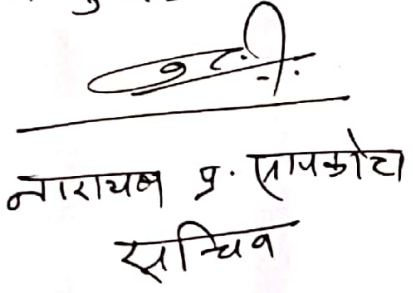 नारायण प्र. सापकोटा
सचिव